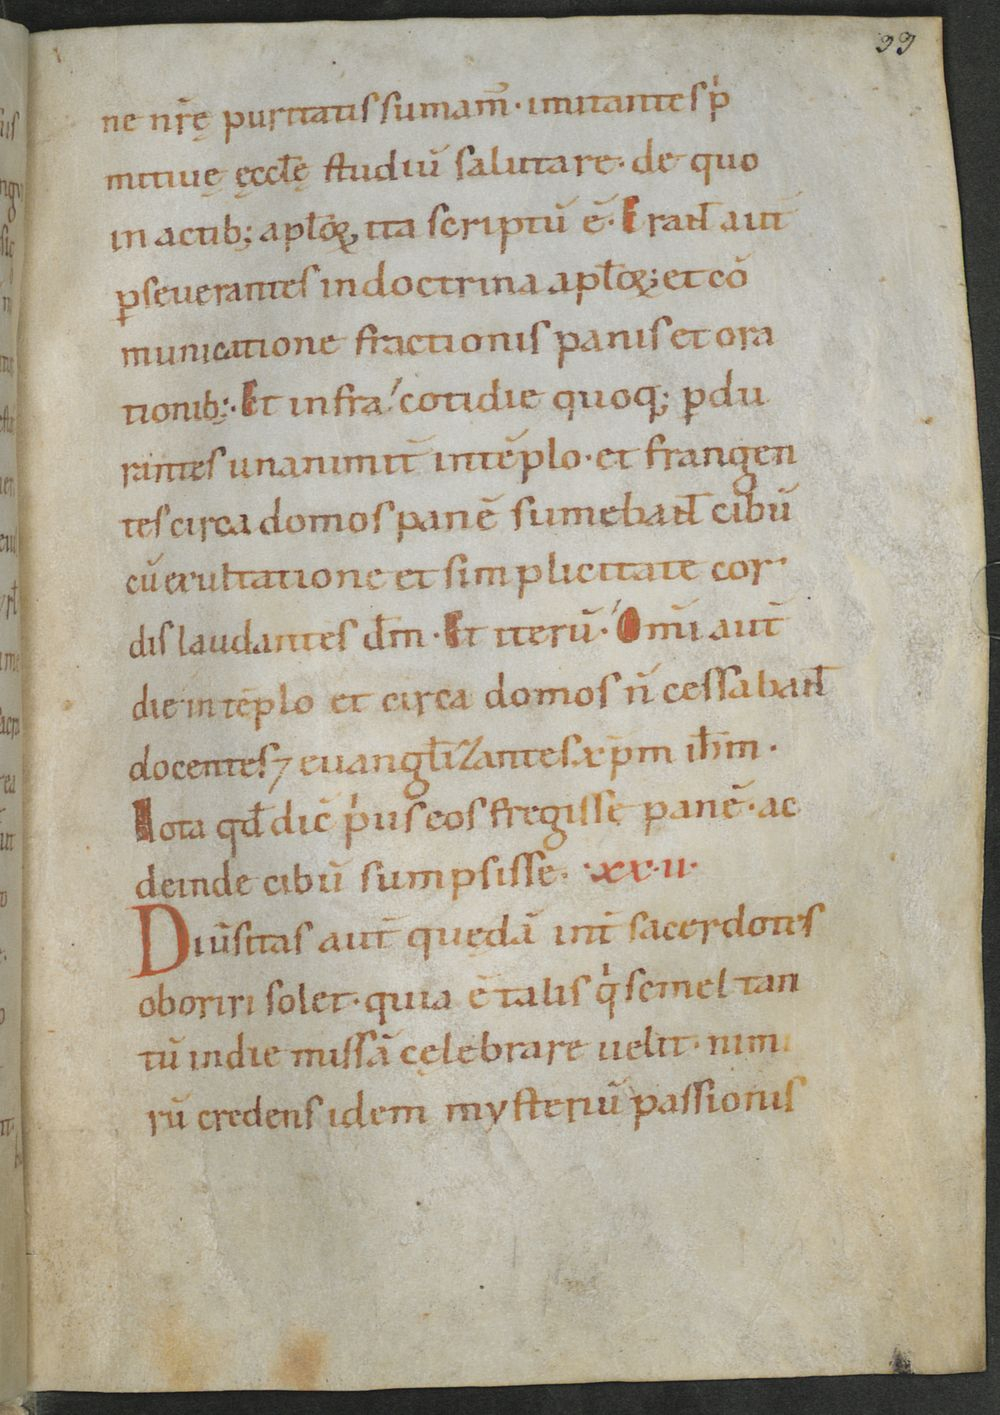 99
ne nr̄ę puritatis sumam̄· imitantes p̍
mitiuę ęccl̄ę studiū salutare· de quo
in actib; apl̄oꝝ ita scriptū ē· Erant̄ aut̄
ꝑseuerantes in doctrina apl̄oꝝ; et cō
municatione fractionis panis et ora
tionib;· Et infra/ cotidie quoq; ꝑdu
rantes unanimit̄ in tēplo· et frangen
tes circa domos panē sumebant̄ cibū
cū exultatione et simplicitate cor
dis laudantes dm̄· Et iterū· Om̄i aut̄
die in tēplo et circa domos n̄ cessabant̄
docentes ⁊ euangl̄izantes xp̄m ih̄m·
Nota qd̄ dic̄ p̍us eos fregisse panē· ac
deinde cibū sumpsisse· ·xx·ii·
Diūsitas aut̄ quędā int̄ sacerdotes
oboriri solet· quia ē talis q̍ semel tan
tū in die missā cęlebrare uelit· nimi
rū credens idem mysteriū passionis